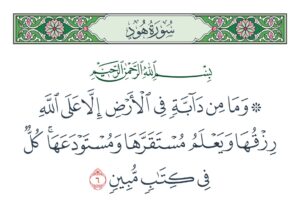 سُورَةُ هُودٍ
بِسْمِ ٱللَّهِ ٱلرَّحْمَٰنِ ٱلرَّحِيمِ
۞ وَمَا مِن دَآبَّةٍ فِى ٱلْأَرْضِ إِلَّا عَلَى ٱللَّهِ
رِزْقُهَا وَيَعْلَمُ مُسْتَقَرَّهَا وَمُسْتَوْدَعَهَا ۚ كُلٌّ
فِى كِتَٰبٍ مُّبِينٍ ٦